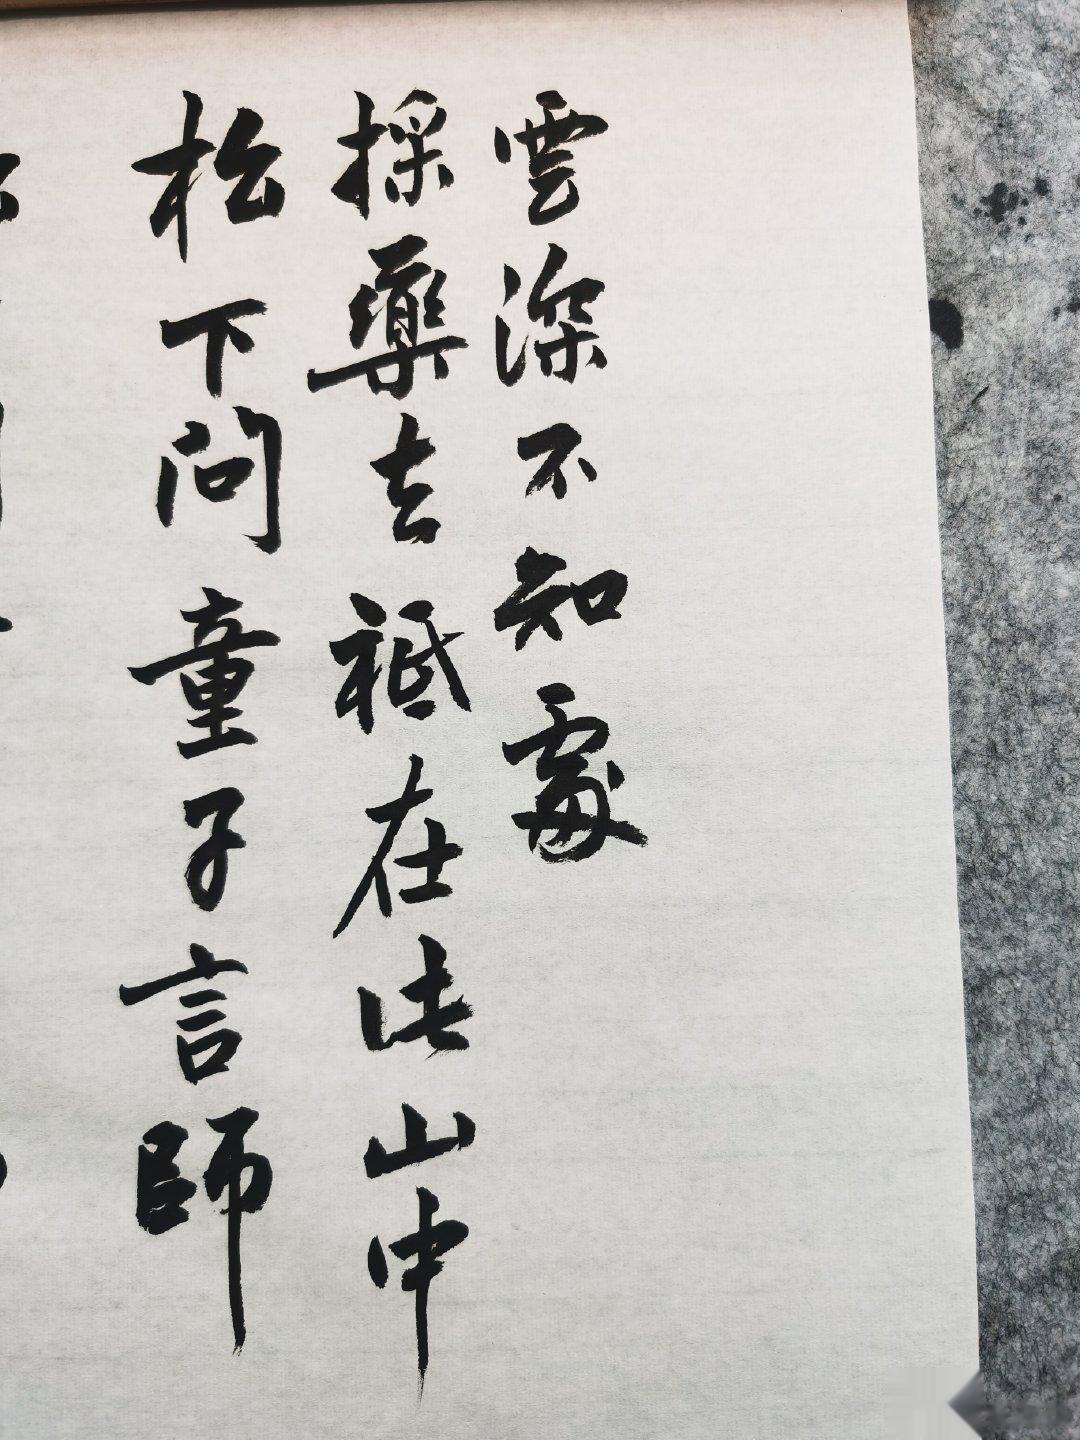 松下問童子言師
採藥去祗在此山中
雲深不知處